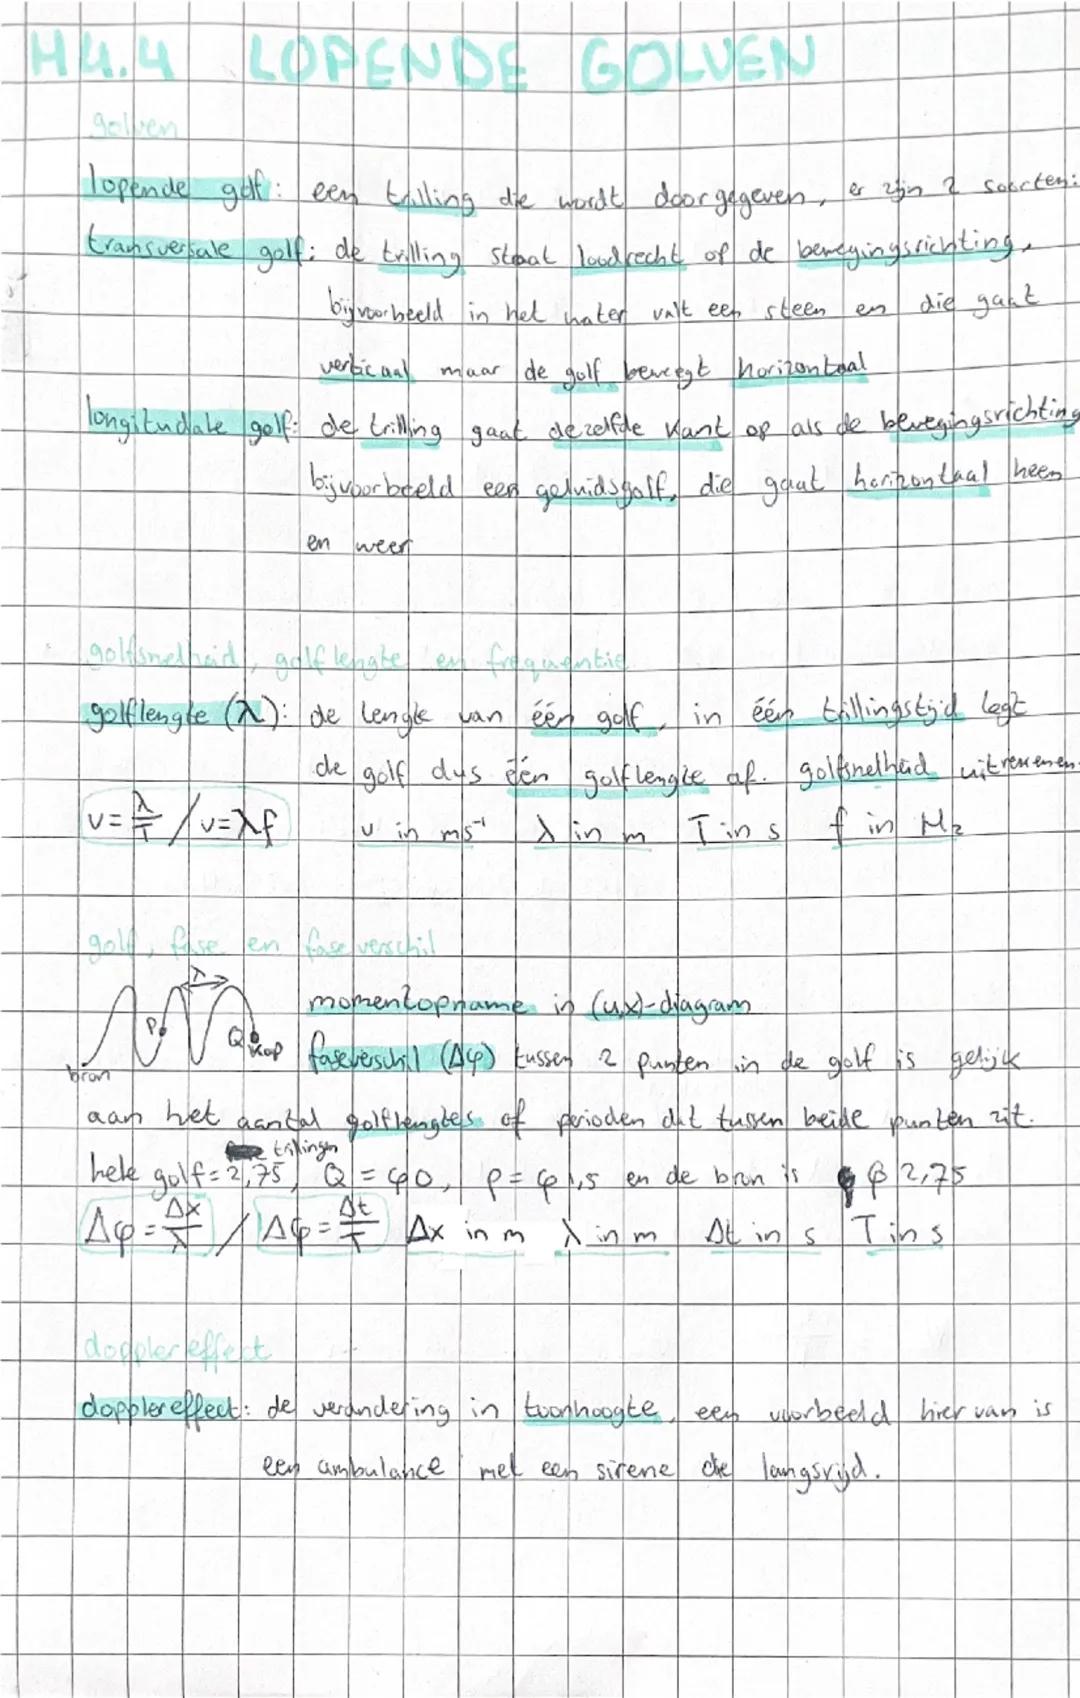 H4.4 LOPENDE GOLVEN
golven
lopende golf: een trilling die wordt doorgegeven, er zijn 2 soorten:
transversale golf: de trilling staat loodrecht op de bewegingsrichting,
bijvoorbeeld in het water valt een steen en die gaat
verticaal maar de golf beweegt horizontaal
longitudale golf: de trilling gaat dezelfde kant op als de bewegingsrichting
bijvoorbeeld een geluidsgolf, die gaat horizontaal heen
en weer
golfsnelheid, golflengte en frequentie
golflengte (λ): de lengte van één golf, in één trillingstijd legt
de golf dus één golflengte af. golfsnelheid uitrekenen:
v = λ/T / v=λf v in ms⁻¹ λ in m T in s f in Hz
golf, fase en faseverschil
λ
momentopname in (u,x)-diagram
P Q kop
faseverschil (Δφ) tussen 2 punten in de golf is gelijk
bron
aan het aantal golflengtes of perioden dat tussen beide punten zit.
trillingen
hele golf = 2,75, Q = φ0, P = φ1,5 en de bron is φ 2,75
Δφ = Δx/λ / Δφ = Δt/T Δx in m λ in m Δt in s T in s
dopplereffect
dopplereffect: de verandering in toonhoogte, een voorbeeld hier van is
een ambulance met een sirene die langsrijd.